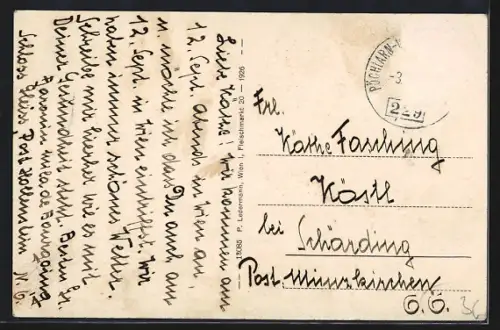 Liebe Käthe! Wir kommen am
12. Sept. abends in Wien an,
u. möchte ich dass Du auch am
12. Sept. in Wien eintriffst. Wir
hatten immer schönes Wetter.
Schreibe mir hieher wie es mit
Deiner Gesundheit steht. Besten
Baronin Mila de Bourgoing
Schloss Post Hollenstein N. Ö.
13085 P. Ledermann, Wien I., Fleischmarkt 20 — 1926
PÖCHLARN-
-3.
229
Frl.
Käthe Fasching
Köstl
bei
Schärding
Post Münzkirchen
O. Ö.
36